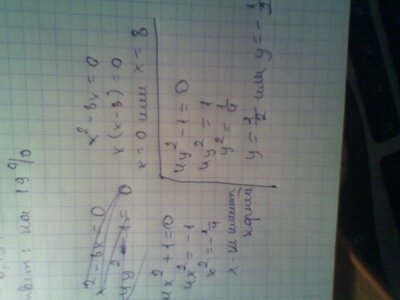 ответ: на 19%
x² - 8x = 0
4y² - 1 = 0
x² - 8x = 0
x(x - 8) = 0
x = 0 или x = 8
4x² + 1 = 0
4x² = -1
x² = -1/4
x - не имеет
корней
4y² - 1 = 0
4y² = 1
y² = 1/4
y = 1/2 или y = -1/2